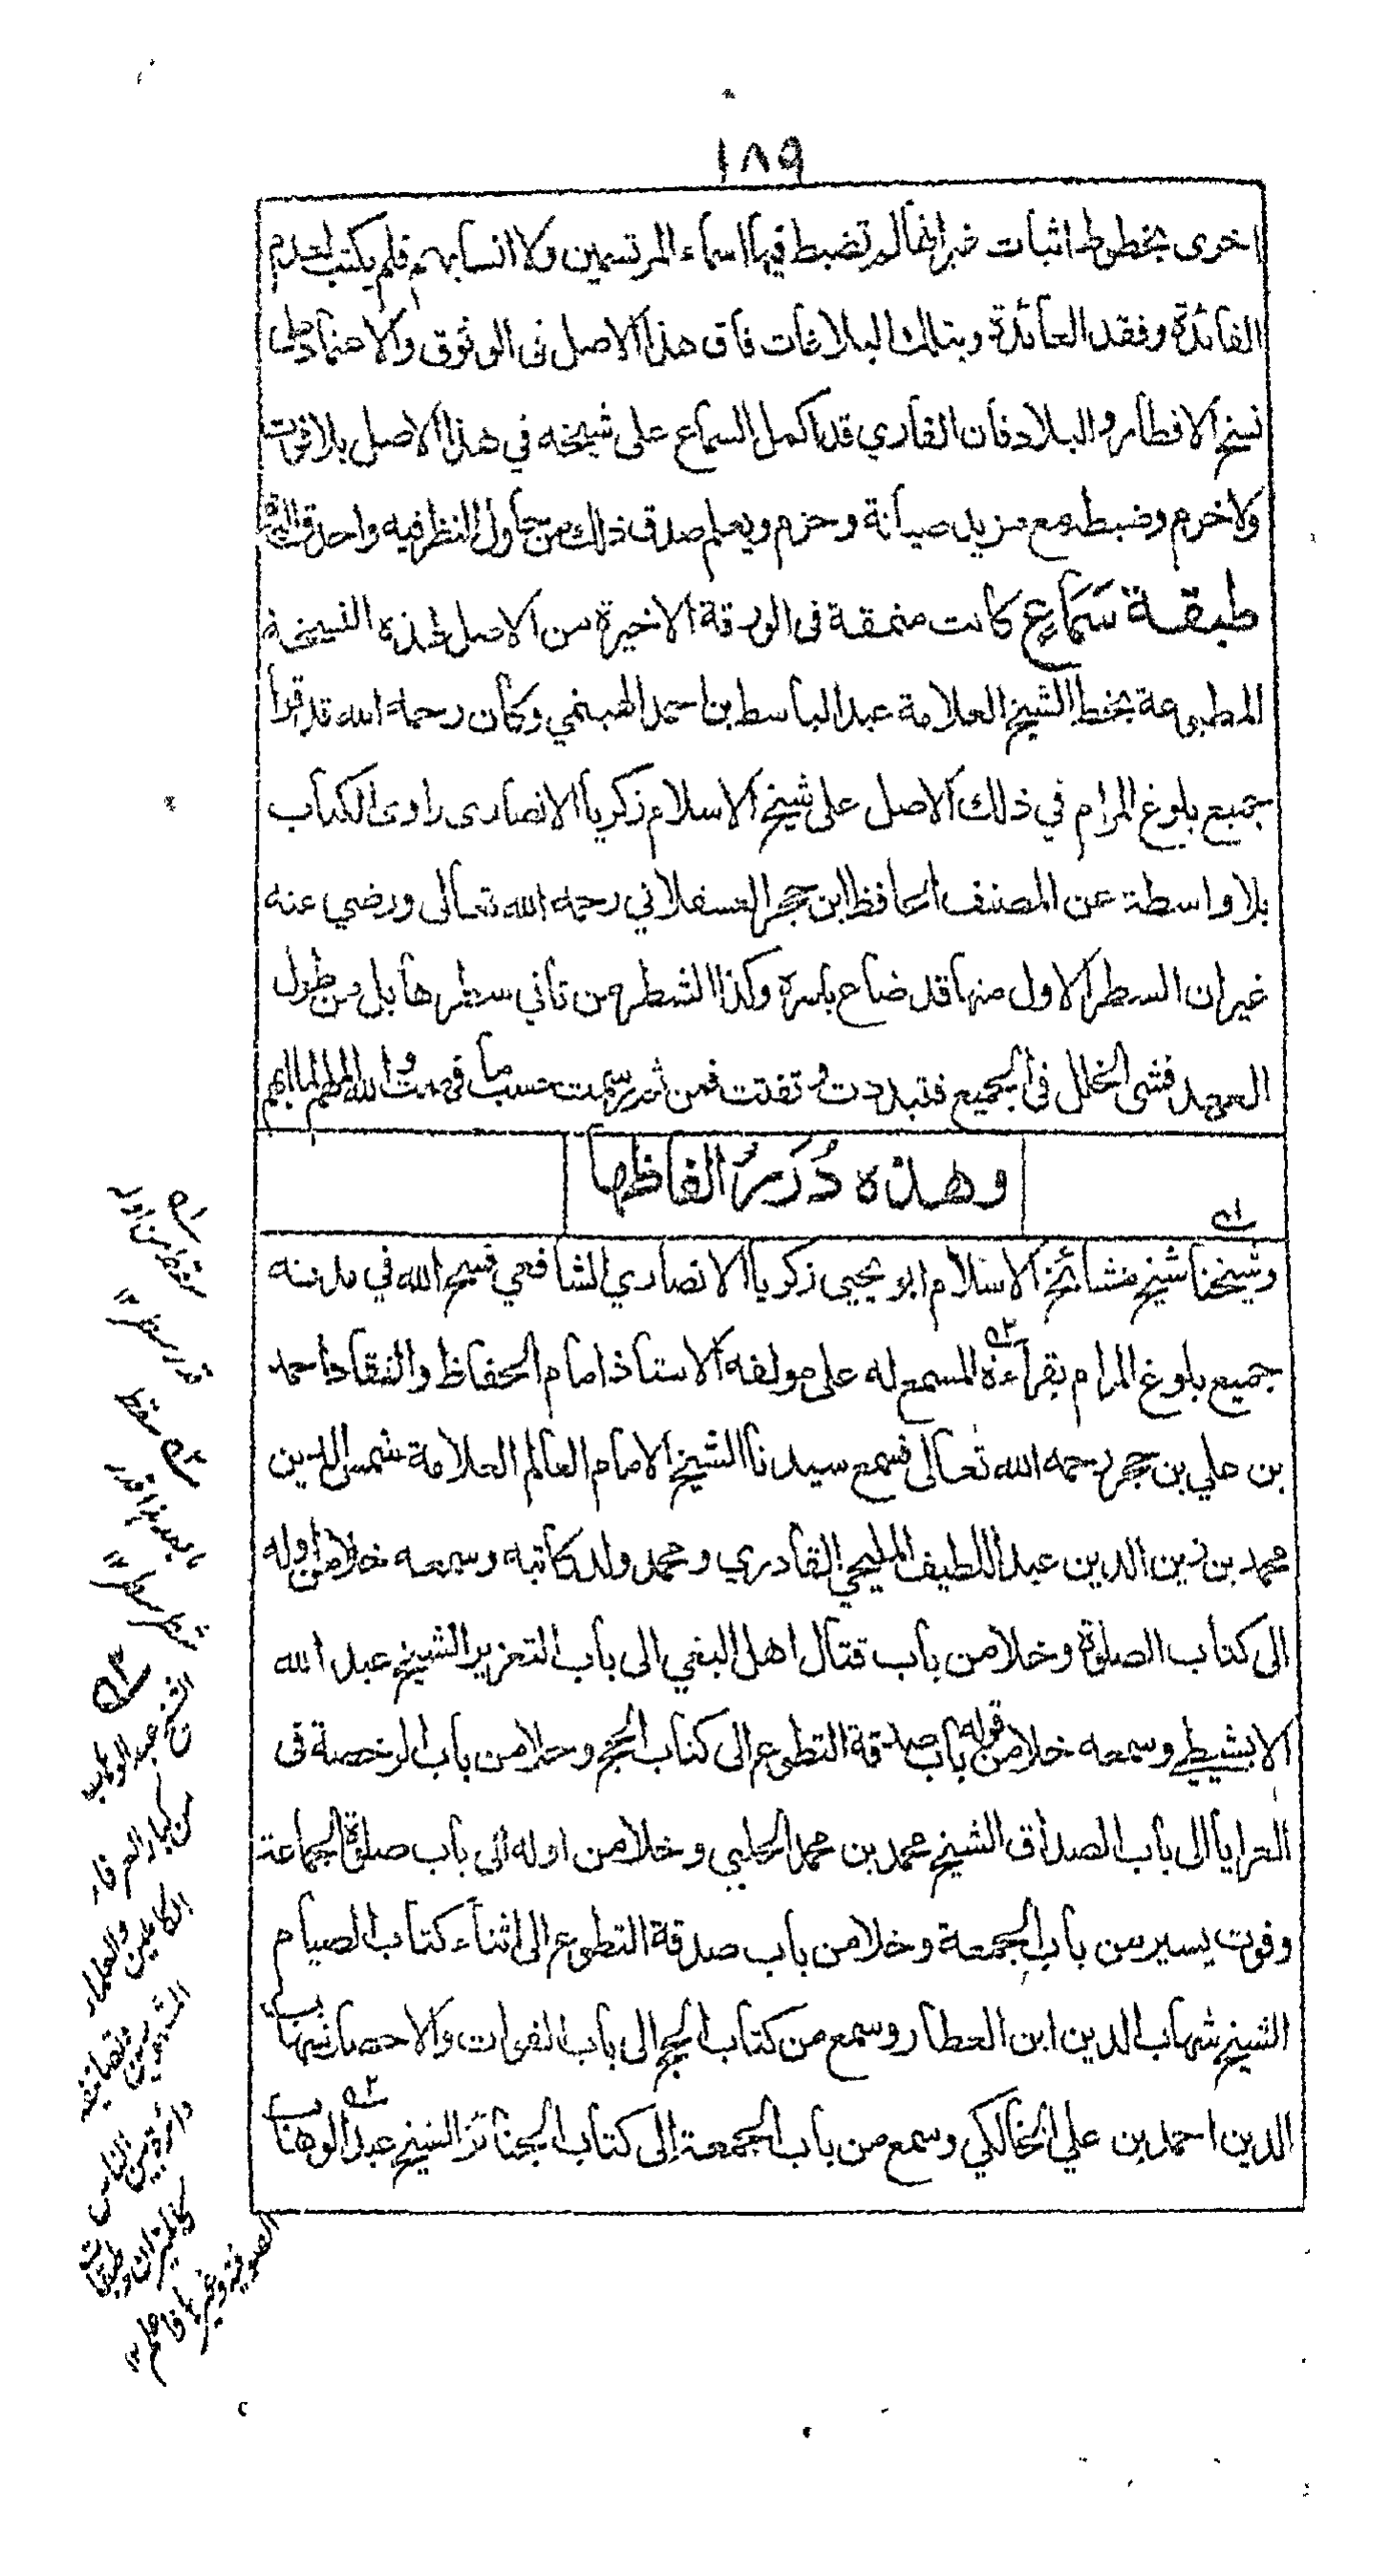 ١٨٩
اخرى بخطوط اثبات غير انها لم تضبط فيها اسماء المرتسمين ولا انسابهم فلم يكتب لعدم
الفائدة وفقد العائدة وبتلك البلاغات فاق هذا الاصل فى الوثوق والاعتماد على
نسخ الاقطار والبلاد فان القاري قد اكمل السماع على شيخه في هذا الاصل بلا فوت
ولا خرم وضبطه مع مزيد صيانة وحزم ويعلم صدق ذلك من حاول النظر فيه واحدق اليه
طبقة سَمَاعٍ كانت منمقة فى الورقة الاخيرة من الاصل لهذه النسخة
المطبوعة بخط الشيخ العلامة عبد الباسط بن احمد الهيثمي وكان رحمه الله قد قرأ
جميع بلوغ المرام في ذلك الاصل على شيخ الاسلام زكريا الانصارى راوى الكتاب
بلا واسطة عن المصنف الحافظ ابن حجر العسقلاني رحمه الله تعالى ورضي عنه
غير ان السطر الاول منها قد ضاع باسره وكذا الشطر من ثاني سطرها بل من طول
العهد فشى الخلل فى الجميع فتبددت وتفتت فمن ثم رسمت حسب ما فهمت والله الملهم لما ابهم
وهذه دُرَرُ الفاظها
وشيخنا شيخ مشائخ الاسلام ابو يحيى زكريا الانصاري الشافعي فسح الله في مدته
جميع بلوغ المرام بقراءة المسمع له على مولفه الاستاذ امام الحفاظ والنقاد احمد
بن علي بن حجر رحمه الله تعالى فسمع سيدنا الشيخ الامام العالم العلامة شمس الدين
محمد بن زين الدين عبد اللطيف المليجي القادري ومحمد ولد كاتبه وسمعه خلا من اوله
الى كتاب الصلوة وخلا من باب قتال اهل البغي الى باب التعزير الشيخ عبد الله
الابشيطي وسمعه خلا من قوله باب صدقة التطوع الى كتاب الحج وخلا من باب الرخصة فى
العرايا الى باب الصداق الشيخ محمد بن محمد الحلبي وخلا من اوله الى باب صلوة الجماعة
وفوت يسير من باب الجمعة وخلا من باب صدقة التطوع الى اثناء كتاب الصيام
الشيخ شهاب الدين ابن العطار وسمع من كتاب الحج الى باب الفوات والاحصار شهاب
الدين احمد بن علي الخالكي وسمع من باب الجمعة الى كتاب الجنائز الشيخ عبد الوهاب
سقط من اول
قدر سطر
سقط
شطر سطر
الشيخ عبد الوهاب
من كبار العرفاء
الكاملين والعلماء
وتصانيفه
دائرة بين الناس
كالميزان وطبقات
الصوفية وغيرها فاعلم